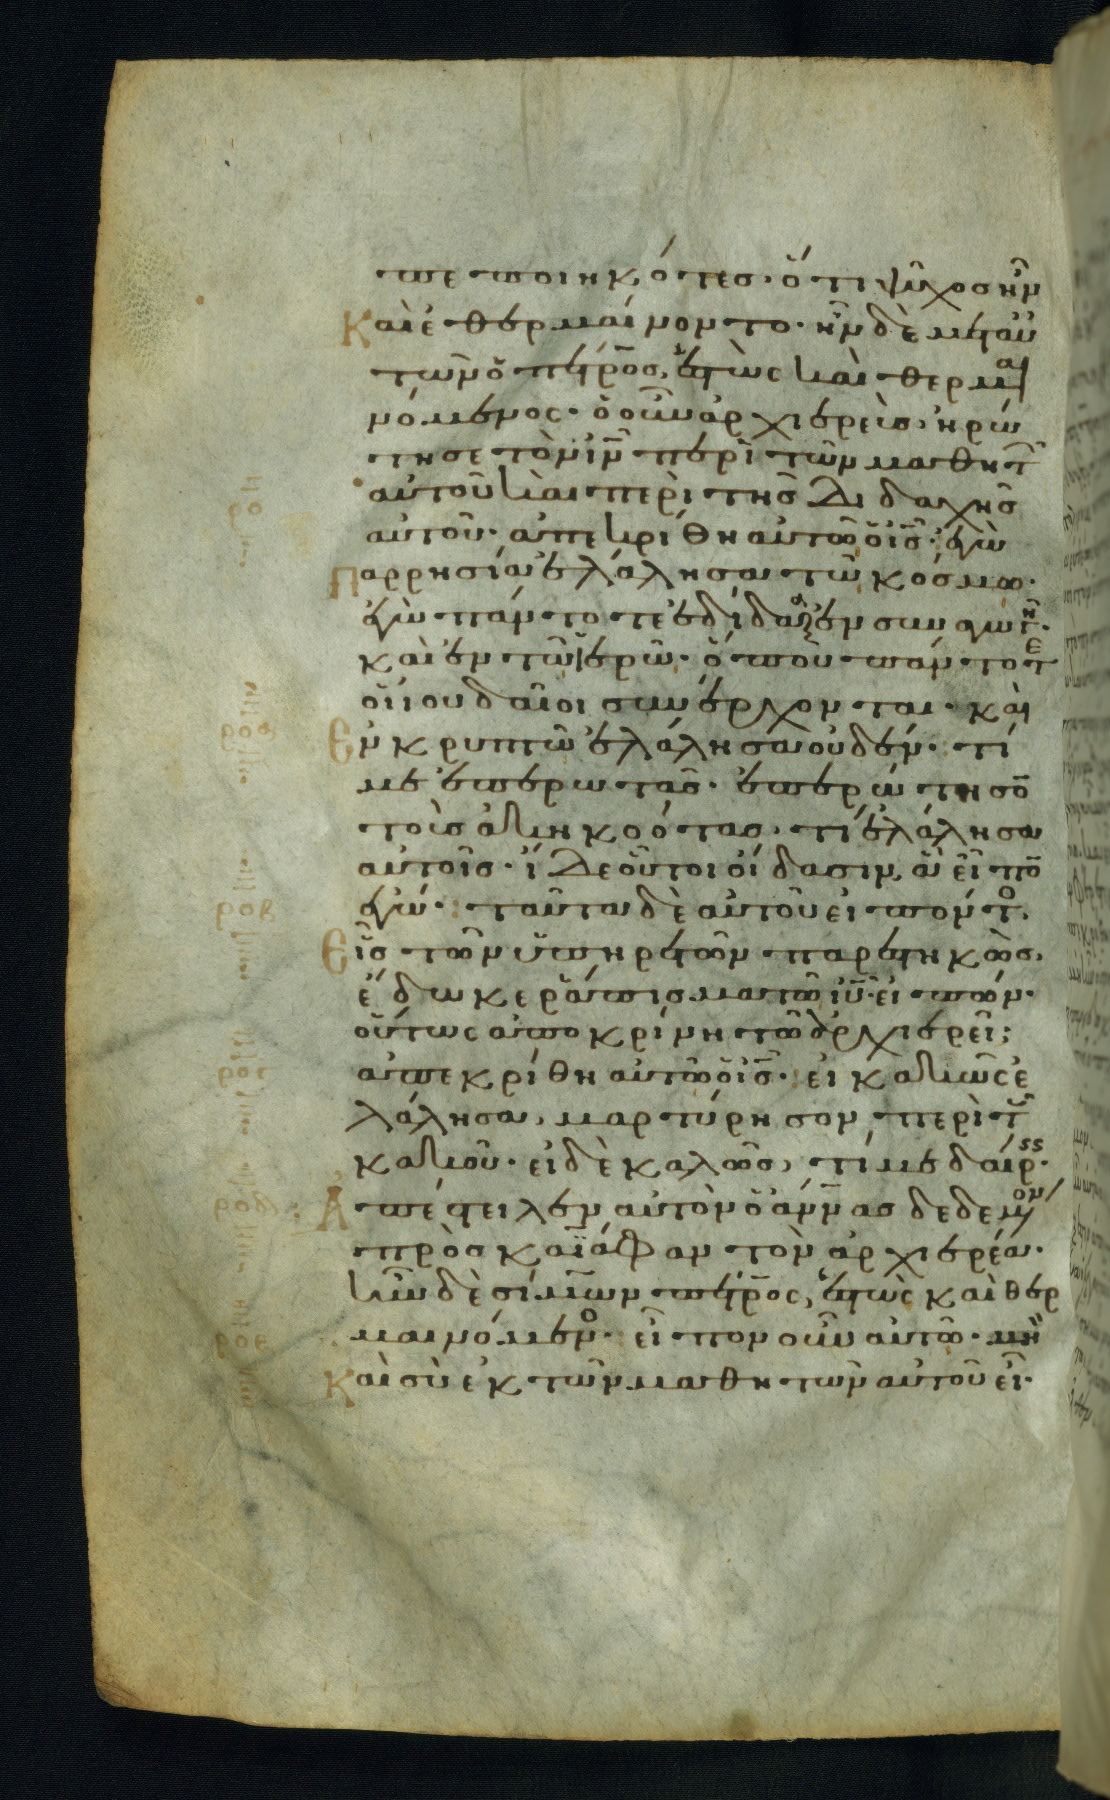 πεποιηκότες· ὅτι ψῦχος ἦν
Καὶ ἐθερμαίνοντο· ἦν δὲ μετ αὐ
τῶν ὁ πέτρος, ἑστὼς καὶ θερμαι
νόμενος· ὁ οὖν ἀρχιερεὺς, ἠρώ
τησε τὸν ἰν περὶ τῶν μαθητ
αὐτοῦ καὶ περὶ τῆς διδαχῆς
αὐτοῦ· ἀπεκρίθη αὐτῶ ὁ ἰς· ἐγὼ
Παρρησία ἐλάλησα τῶ κόσμω·
ἐγὼ πάντοτε ἐδίδαξα ἐν συναγωγῆ·
καὶ ἐν τῶ ἱερῶ· ὅπου πάντοτε
οἱ ἰουδαῖοι συνέρχονται· καὶ
Εν κρυπτῶ ἐλάλησα οὐδέν· τί
με ἐπερωτᾶς· ἐπερώτησο
τοὺς ἀκηκοότας· τί ἐλάλησα
αὐτοῖς· ἴδε οὗτοι οἴδασιν ἃ εἶπο
ἐγώ· ταῦτα δὲ αὐτοῦ εἰπόντο,
Εἷς τῶν ὑπηρετῶν παρεστηκὼς,
ἔδωκε ῥάπισμα τῶ ἰυ· εἰπών·
οὕτως ἀποκρίνη τῶ ἀρχιερεῖ;
ἀπεκρίθη αὐτῶ ὁ ἰς· εἰ κακῶς ἐ
λάλησα, μαρτύρησον περὶ τ
κακοῦ· εἰ δὲ καλῶς, τί με δαίρ·
Ἀπέστειλεν αὐτὸν ὁ ἄννας δεδεμον
πρὸς καϊάφαν τὸν ἀρχιερέα·
ἦν δὲ σίμων πέτρος, ἑστὼς καὶ θερ
μαινόμενο· εἶπον οὖν αὐτῶ· μὴ
Καὶ σὺ ἐκ τῶν μαθητῶν αὐτοῦ εἶ·
ροη
ροβ
ρογ
ροδ
ροε